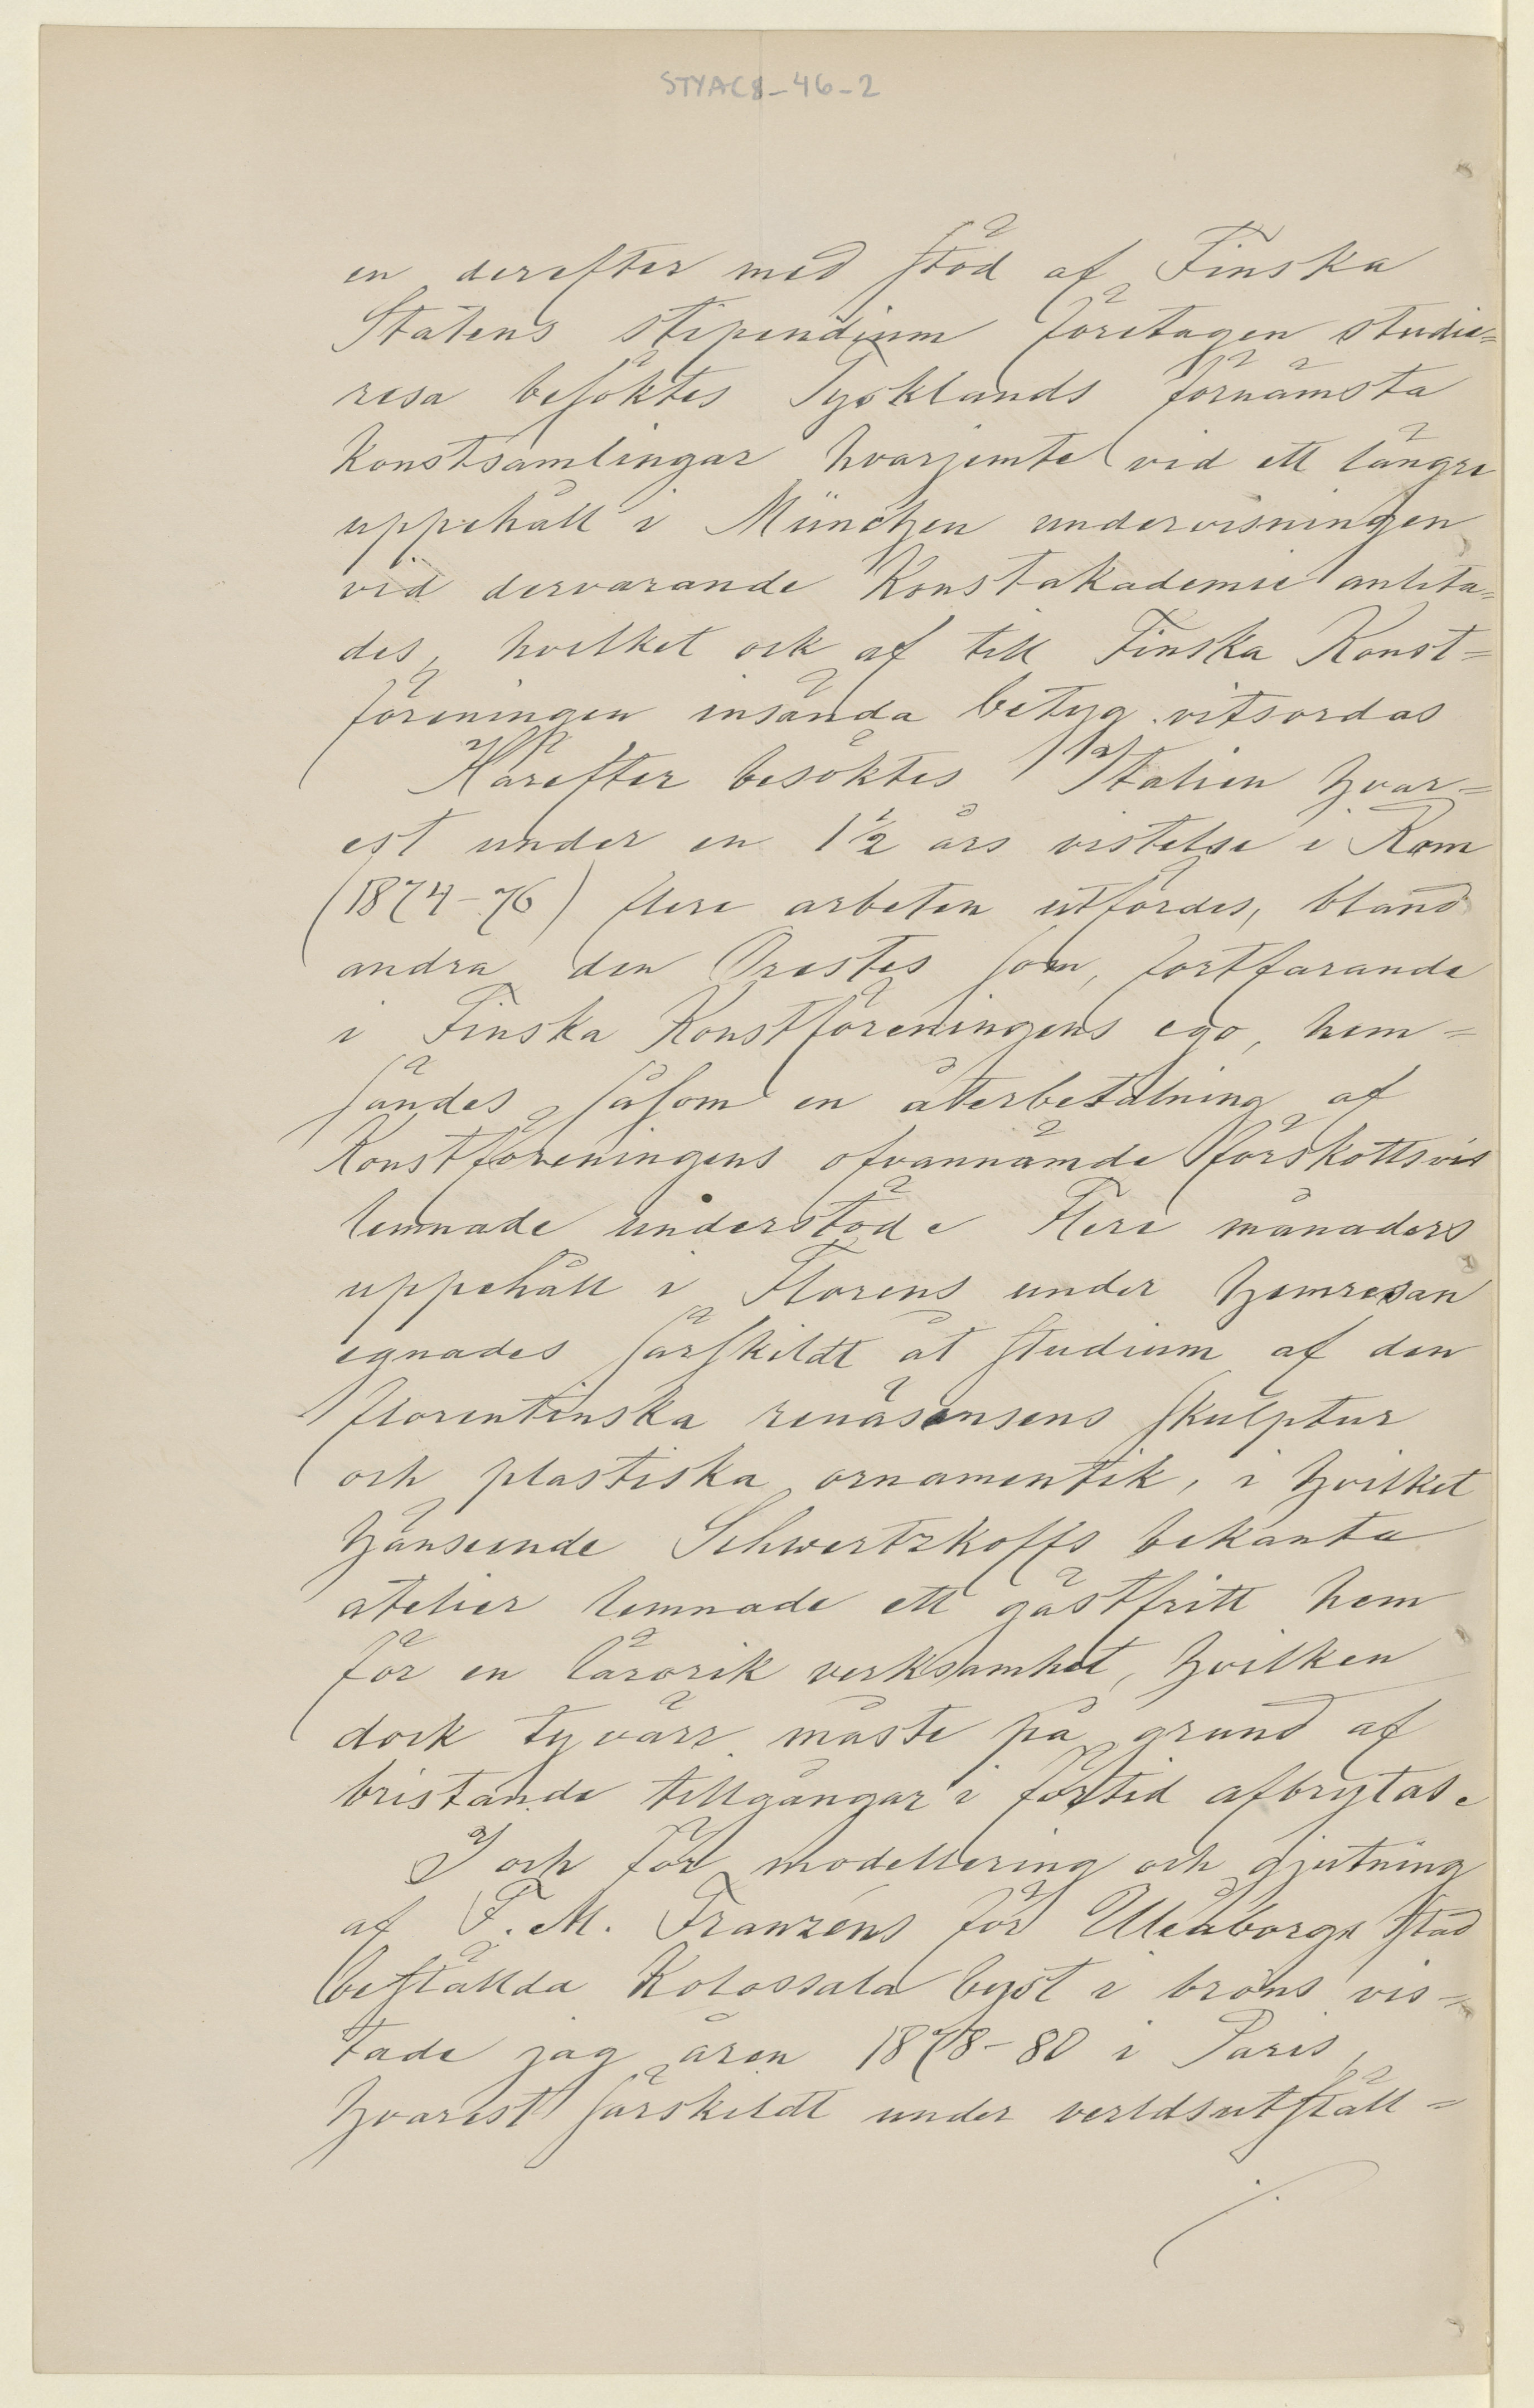 STYAC8-46-2
en derefter med stöd af Finska
Statens stipendium företagen studie=
resa besöktes Tysklands förnämsta
Konstsamlingar hvarjemte vid ett längre
uppehåll i München undervisningen
vid dervarande Konstakademie anlita=
des, hvilket ock af till Finska Konst=
föreningen insända betyg vitsordas
Härefter besöktes Italien hvar=
est under en 1½ års vistelse i Rom
(1874-76) flere arbeten utfördes, bland
andra den Orestes som, fortfarande
i Finska Konstföreningens ego, hem=
sändes såsom en återbetalning af
Konstföreningens ofvannämde förskottsvis
lemnade understöd. Flere månaders
uppehåll i Florens under hemresan
egnades särskildt åt studium af den
florentinska renäsansens skulptur
och plastiska ornamentik, i hvilket
hänseende Schwertzkoffs bekanta
atelier lemnade ett gästfritt hem
för en lärorik verksamhet, hvilken
dock tyvärr måste på grund af
bristande tillgångar i förtid afbrytas.
I och för modellering och gjutning
af F. M. Franzéns för Uleåborgs stad
beställda Kolossala byst i bröns vis=
tade jag åren 1878-80 i Paris,
hvarest särskildt under verldsutställ=